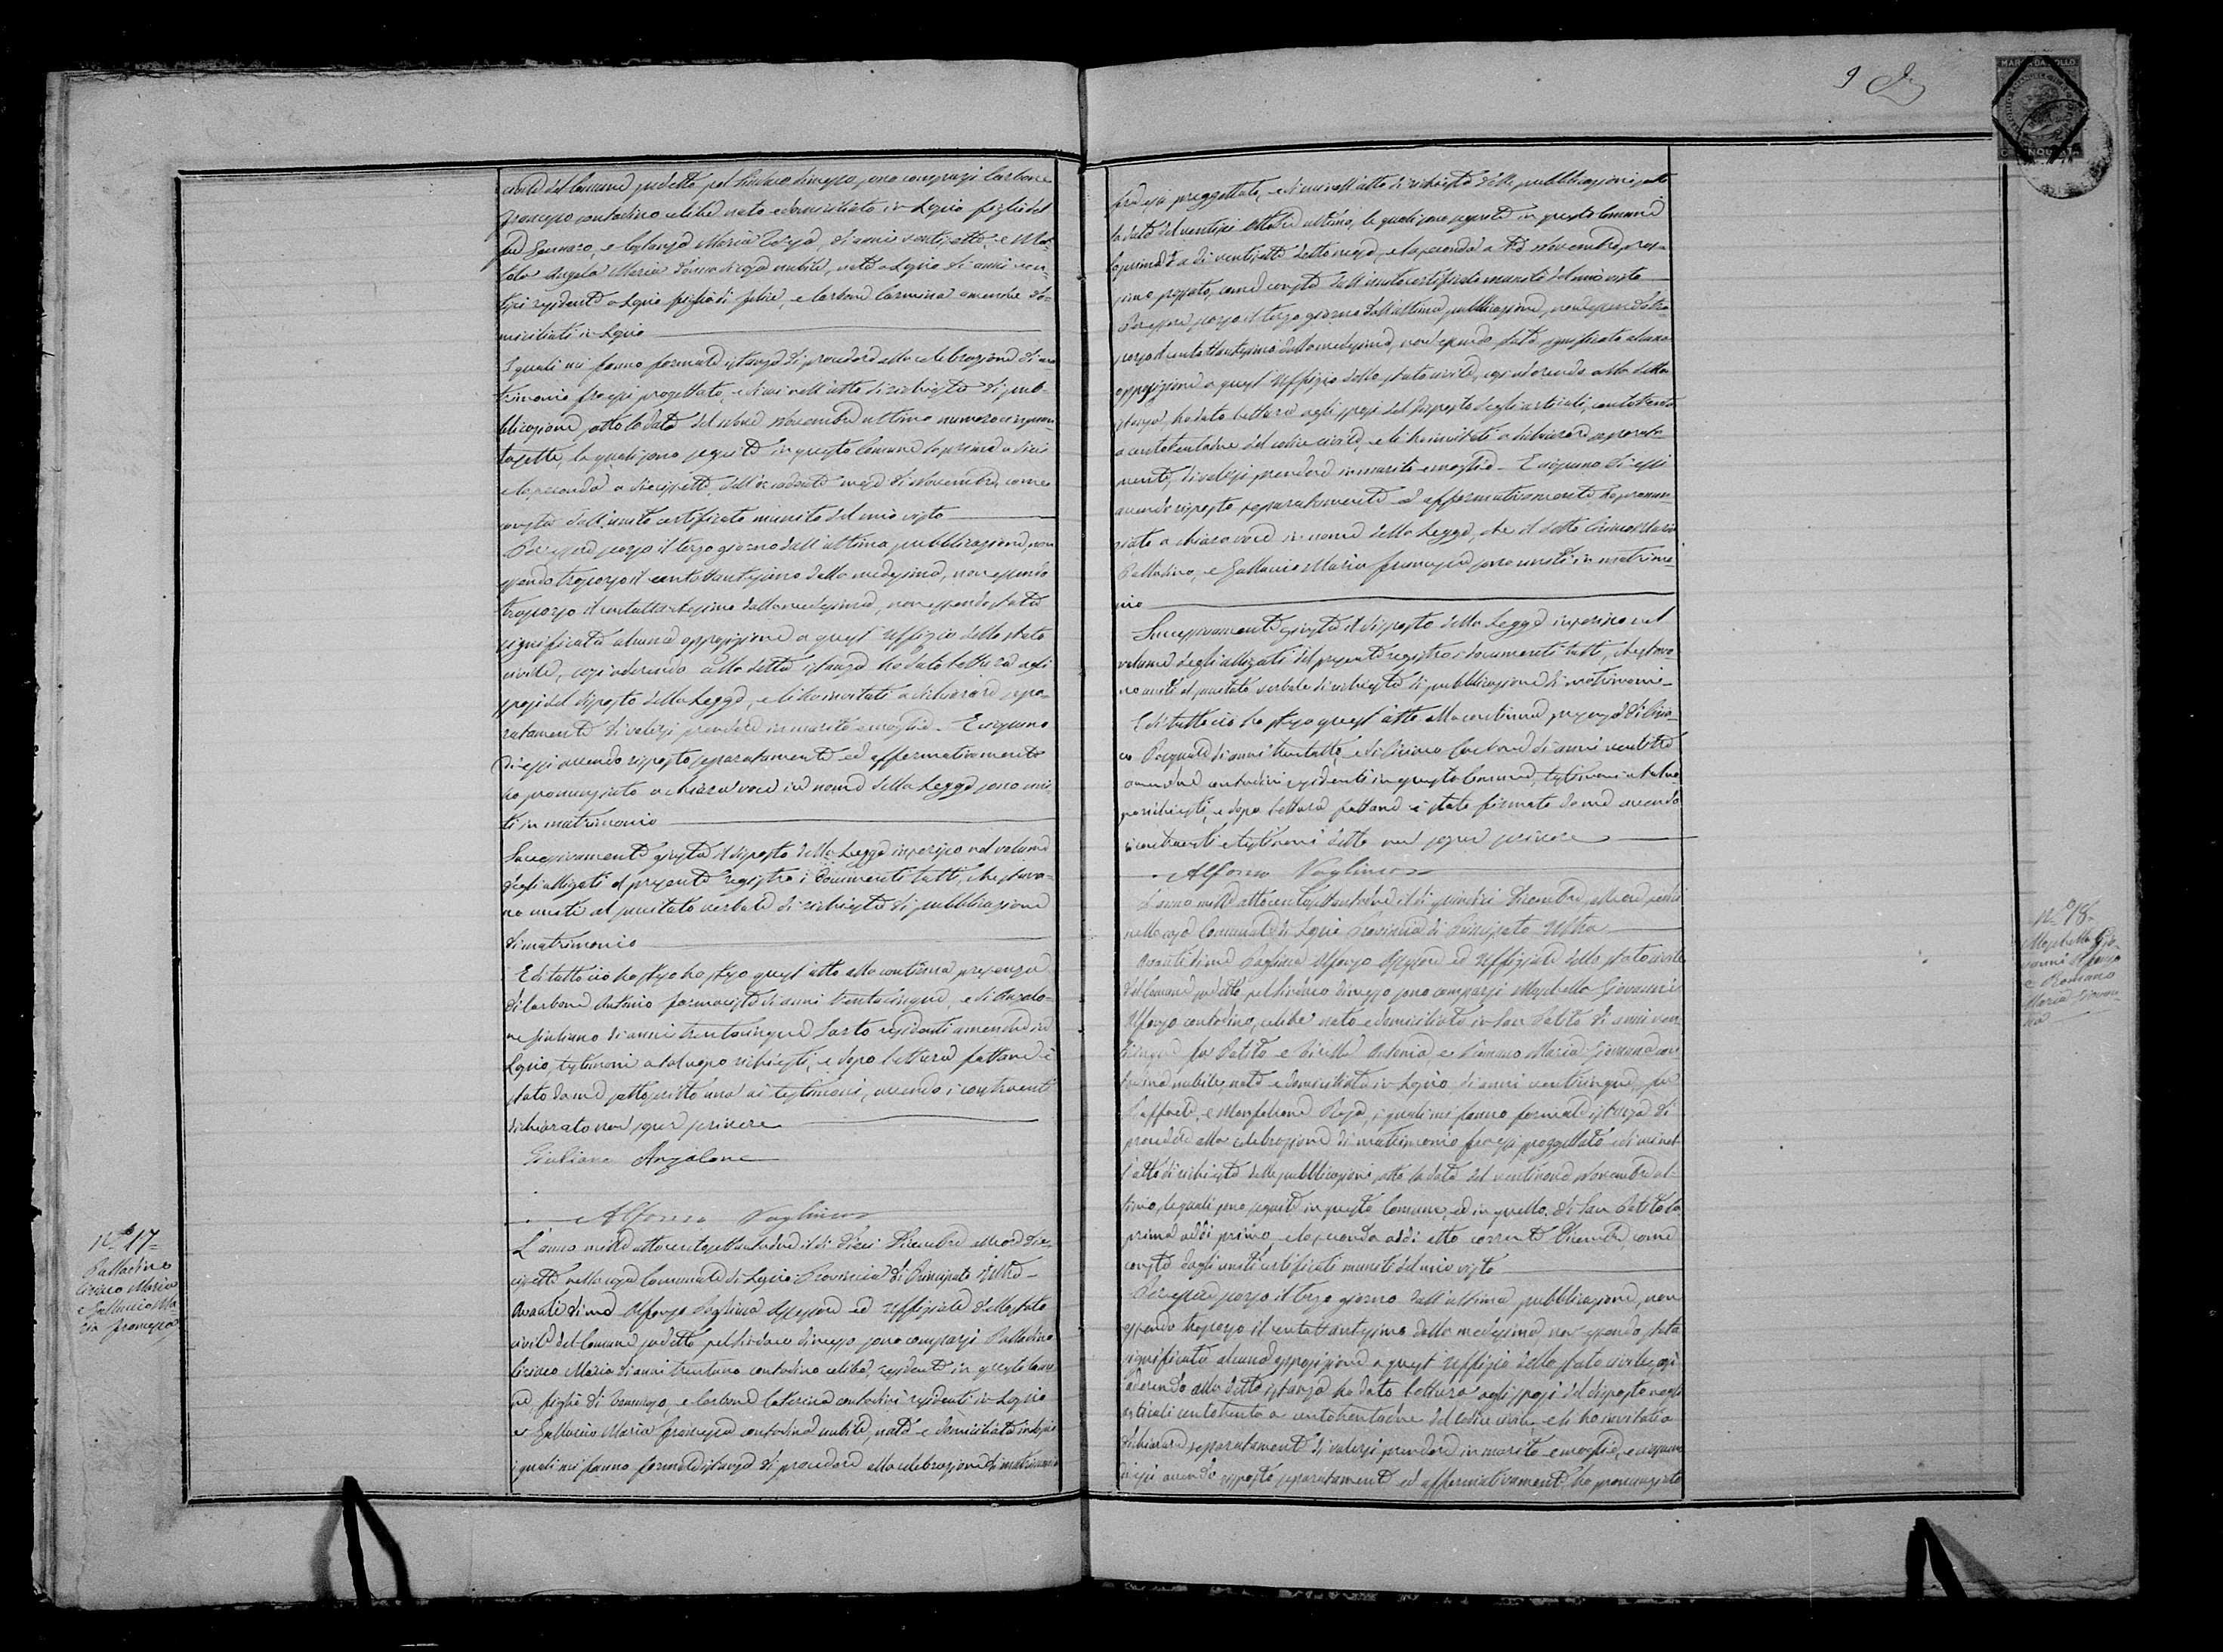 civile del Comune sudetto pel Sindaco di esso, sono comparsi Carbone
Francesco contadino celibe nato e domiciliato in figlio del
fu Gennaro, e Maria Teresa, di anni ventisette, e
Angela Maria nubile, nata a di anni ven-
residente a figlia di Felice, e Carbone Carmina amendue do-
miciliati in
I quali mi fanno formale istanza di procedere alla celebrazione di ma
trimonio fra essi progettato, e di cui nell'atto di richiesta di pub-
blicazione sotto la data del nove Novembre ultimo numero cinquan-
tasette, le quali sono seguite in questo Comune la prima a dieci
e la seconda a diecisette dell'scadente mese di Novembre, come
consta dall'unito certificato munito del mio visto
Per essere scorso il terzo giorno dall'ultima pubblicazione, non
essendo trascorso il centottantesimo dalla medesima, non essendo
trascorso il centottantesimo dalla medesima, non essendo stata
significata alcuna opposizione a quest'Uffizio dello stato
civile, così aderendo alla detta istanza ho dato lettura agli
sposi del disposto della Legge, e li ho invitati a dichiarare sepa-
ratamente di volersi prendere in marito e moglie. E ciascuno
di essi avendo risposto separatamente ed affermativamente
ho pronunziato a chiara voce in nome della Legge sono uni-
ti in matrimonio
Successivamente giusta il disposto della Legge inserisco nel volume
degli allegati al presente registro i documenti tutti, che stava-
no uniti al precitato verbale di richiesta di pubblicazione
di matrimonio
E di tutto ciò ho steso ho steso quest'atto alla continua presenza
di Carbone Antonio farmacista di anni trentacinque, e di Anzalo-
ne Giuliano di anni trentacinque Sarto residenti amendue in
testimoni a tal uopo richiesti, e dopo lettura fattane è
stato da me sottoscritto uno ai testimoni, avendo i contraenti
dichiarato non sapere scrivere
Giuliano Anzalone
Alfonso
N.° 17=
Palladino
Ciriaco Maria
e Galluccio Ma-
ria Francesca
L'anno mille ottocento settantadue il dì dieci Dicembre alle ore die-
cisette nella casa Comunale di Provincia di Principato Ultra
Avanti di me Alfonso Assessore ed Uffiziale dello stato
civile del Comune sudetto pel Sindaco di esso sono comparsi Palladino
Ciriaco Maria di anni trentuno contadino celibe, residente in questo Comu
ne, figlio di e Carbone Caterina contadini residenti in
e Galluccio Maria Francesca contadina nubile, nata e domiciliata in
i quali mi fanno formale istanza di procedere alla celebrazione di matrimonio
9
MARCA DA BOLLO
fra essi progettato, e di cui nell'atto di richiesta delle pubblicazioni sotto
la data del ventisei Ottobre ultimo, le quali sono seguite in questo Comune
la prima a dì ventisette detto mese, e la seconda a tre Novembre pros-
simo passato, come consta dall'unito certificato munito del mio visto
Per essere scorso il terzo giorno dall'ultima pubblicazione, non essendo tra
scorso il centottantesimo dalla medesima, non essendo stata significata alcuna
opposizione a quest'Uffizio dello stato civile, così aderendo alla detta
istanza ho dato lettura agli sposi del disposto degli articoli centotrenta
a centotrentadue del codice civile, e li ho invitati a dichiarare separata-
mente, di volersi prendere in marito e moglie. E ciascuno di essi
avendo risposto separatamente ed affermativamente ho pronun
ziato a chiara voce in nome della Legge, che il detto Ciriaco Maria
Palladino, e Galluccio Maria Francesca sono uniti in matrimo
nio
Successivamente giusta il disposto della Legge inserisco nel
volume degli allegati del presente registro i documenti tutti, che stava-
no uniti al precitato verbale di richiesta di pubblicazione di matrimoni
E di tutto ciò ho steso quest'atto alla continua presenza di
Pasquale di anni trentotto, e di Ciriaco Carbone di anni ventitre
amendue contadini residenti in questo Comune, testimoni a tal uo-
po richiesti, e dopo lettura fattane è stato firmato da me avendo
i contraenti e testimoni detto non saper scrivere
Alfonso
N.° 18=
Gio-
vanni Alfonso
e Romano
Maria Giovan-
na
L'anno mille ottocento settantadue il dì quindici Dicembre, alle ore sedici
nella casa Comunale di Provincia di Principato Ultra
Avanti di me Alfonso Assessore ed Uffiziale dello stato civile
del Comune sudetto pel Sindaco di esso sono comparsi Giovanni
Alfonso contadino, celibe nato e domiciliato in San Potito di anni ven
ticinque fu Potito e Antonia, e Romano Maria Giovanna con
tadina nubile, nata e domiciliata in di anni venticinque fu
Raffaele, e Rosa, i quali mi fanno formale istanza di
procedere alla celebrazione di matrimonio fra essi progettato e di cui nel-
l'atto di richiesta delle pubblicazioni sotto la data del ventinove Novembre ul-
timo, le quali sono seguite in questo Comune, ed in quello di San Potito la
prima addì primo e la seconda addì otto corrente Dicembre, come
consta dagli uniti certificati muniti del mio visto
Per essere scorso il terzo giorno dall'ultima pubblicazione, non
essendo trascorso il centottantesimo dalla medesima, non essendo stata
significata alcuna opposizione a quest'Uffizio dello stato civile, così
aderendo alla detta istanza ho dato lettura agli sposi del disposto negli
articoli centotrenta a centotrentadue del codice civile, e li ho invitati a
dichiarare separatamente di volersi prendere in marito e moglie, e ciascuno
di essi avendo risposto separatamente ed affermativamente ho pronunziato